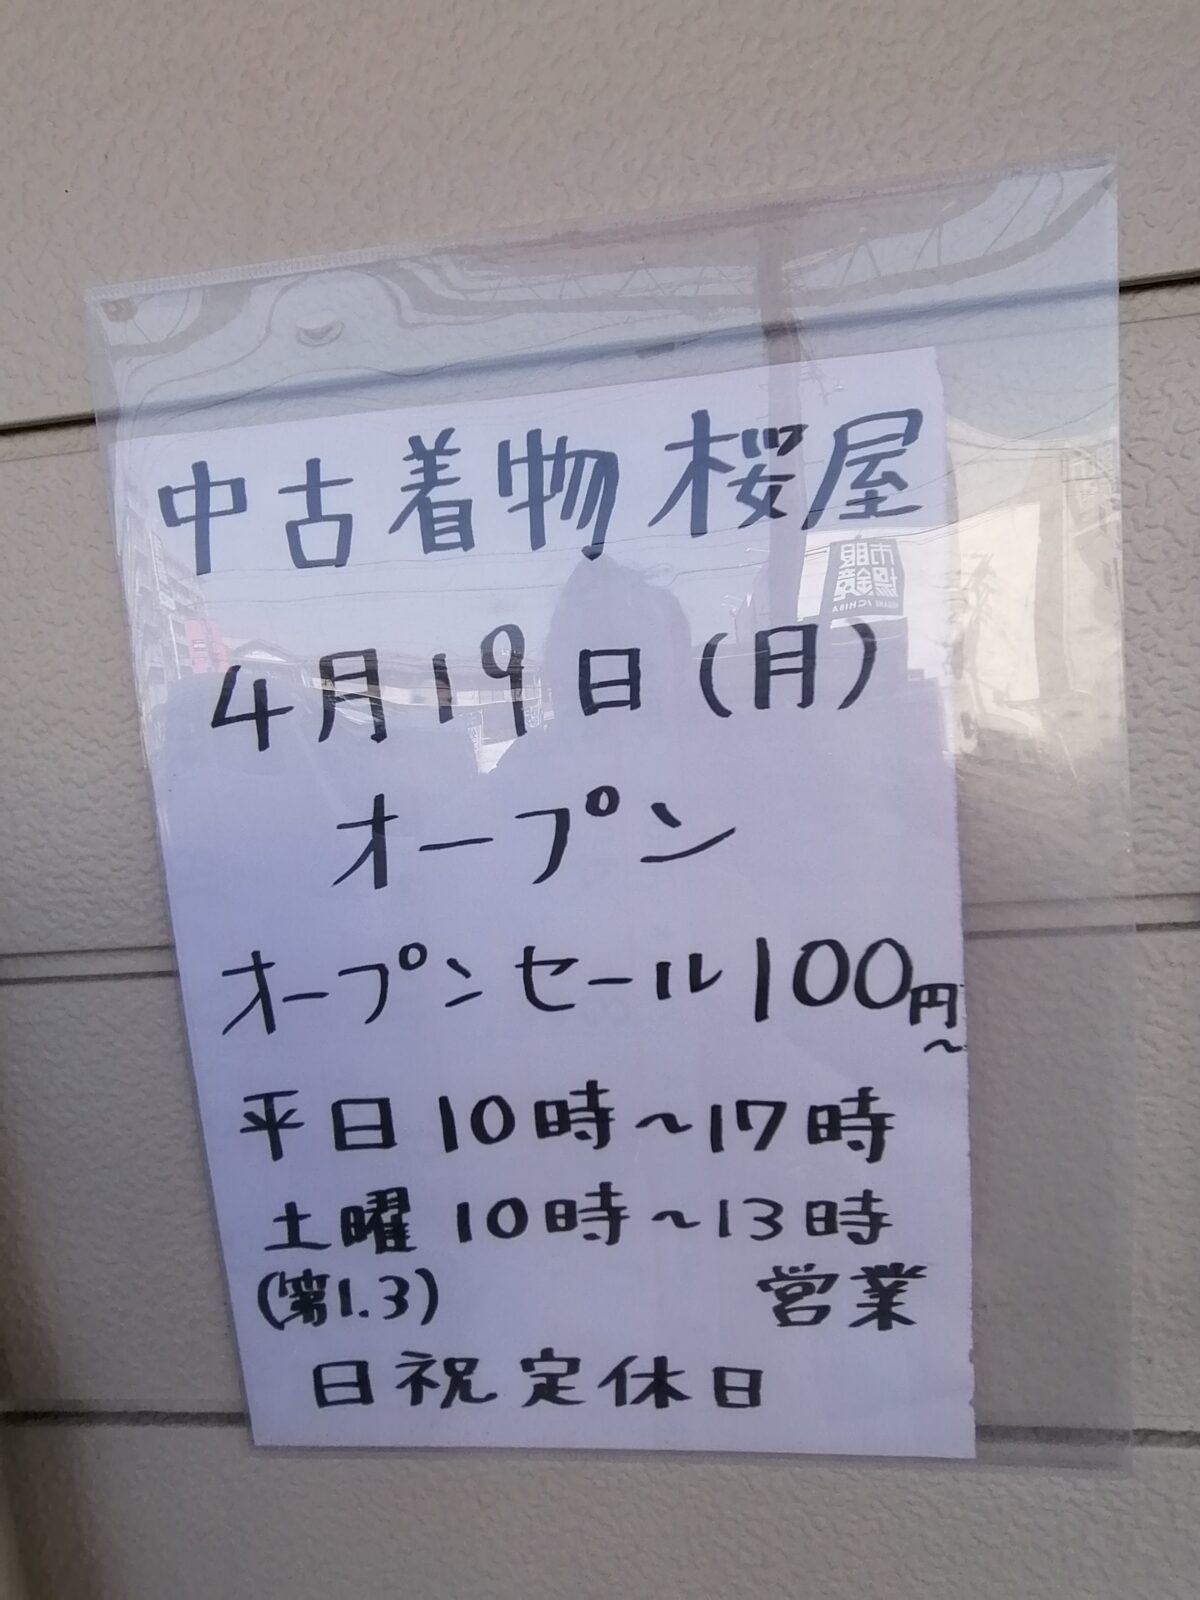 中古着物 桜屋
4月19日(月)
オープン
オープンセール100円~
平日 10時~17時
土曜 10時~13時
(第1.3) 営業
日祝 定休日
眼鏡
市場
ICHIBA